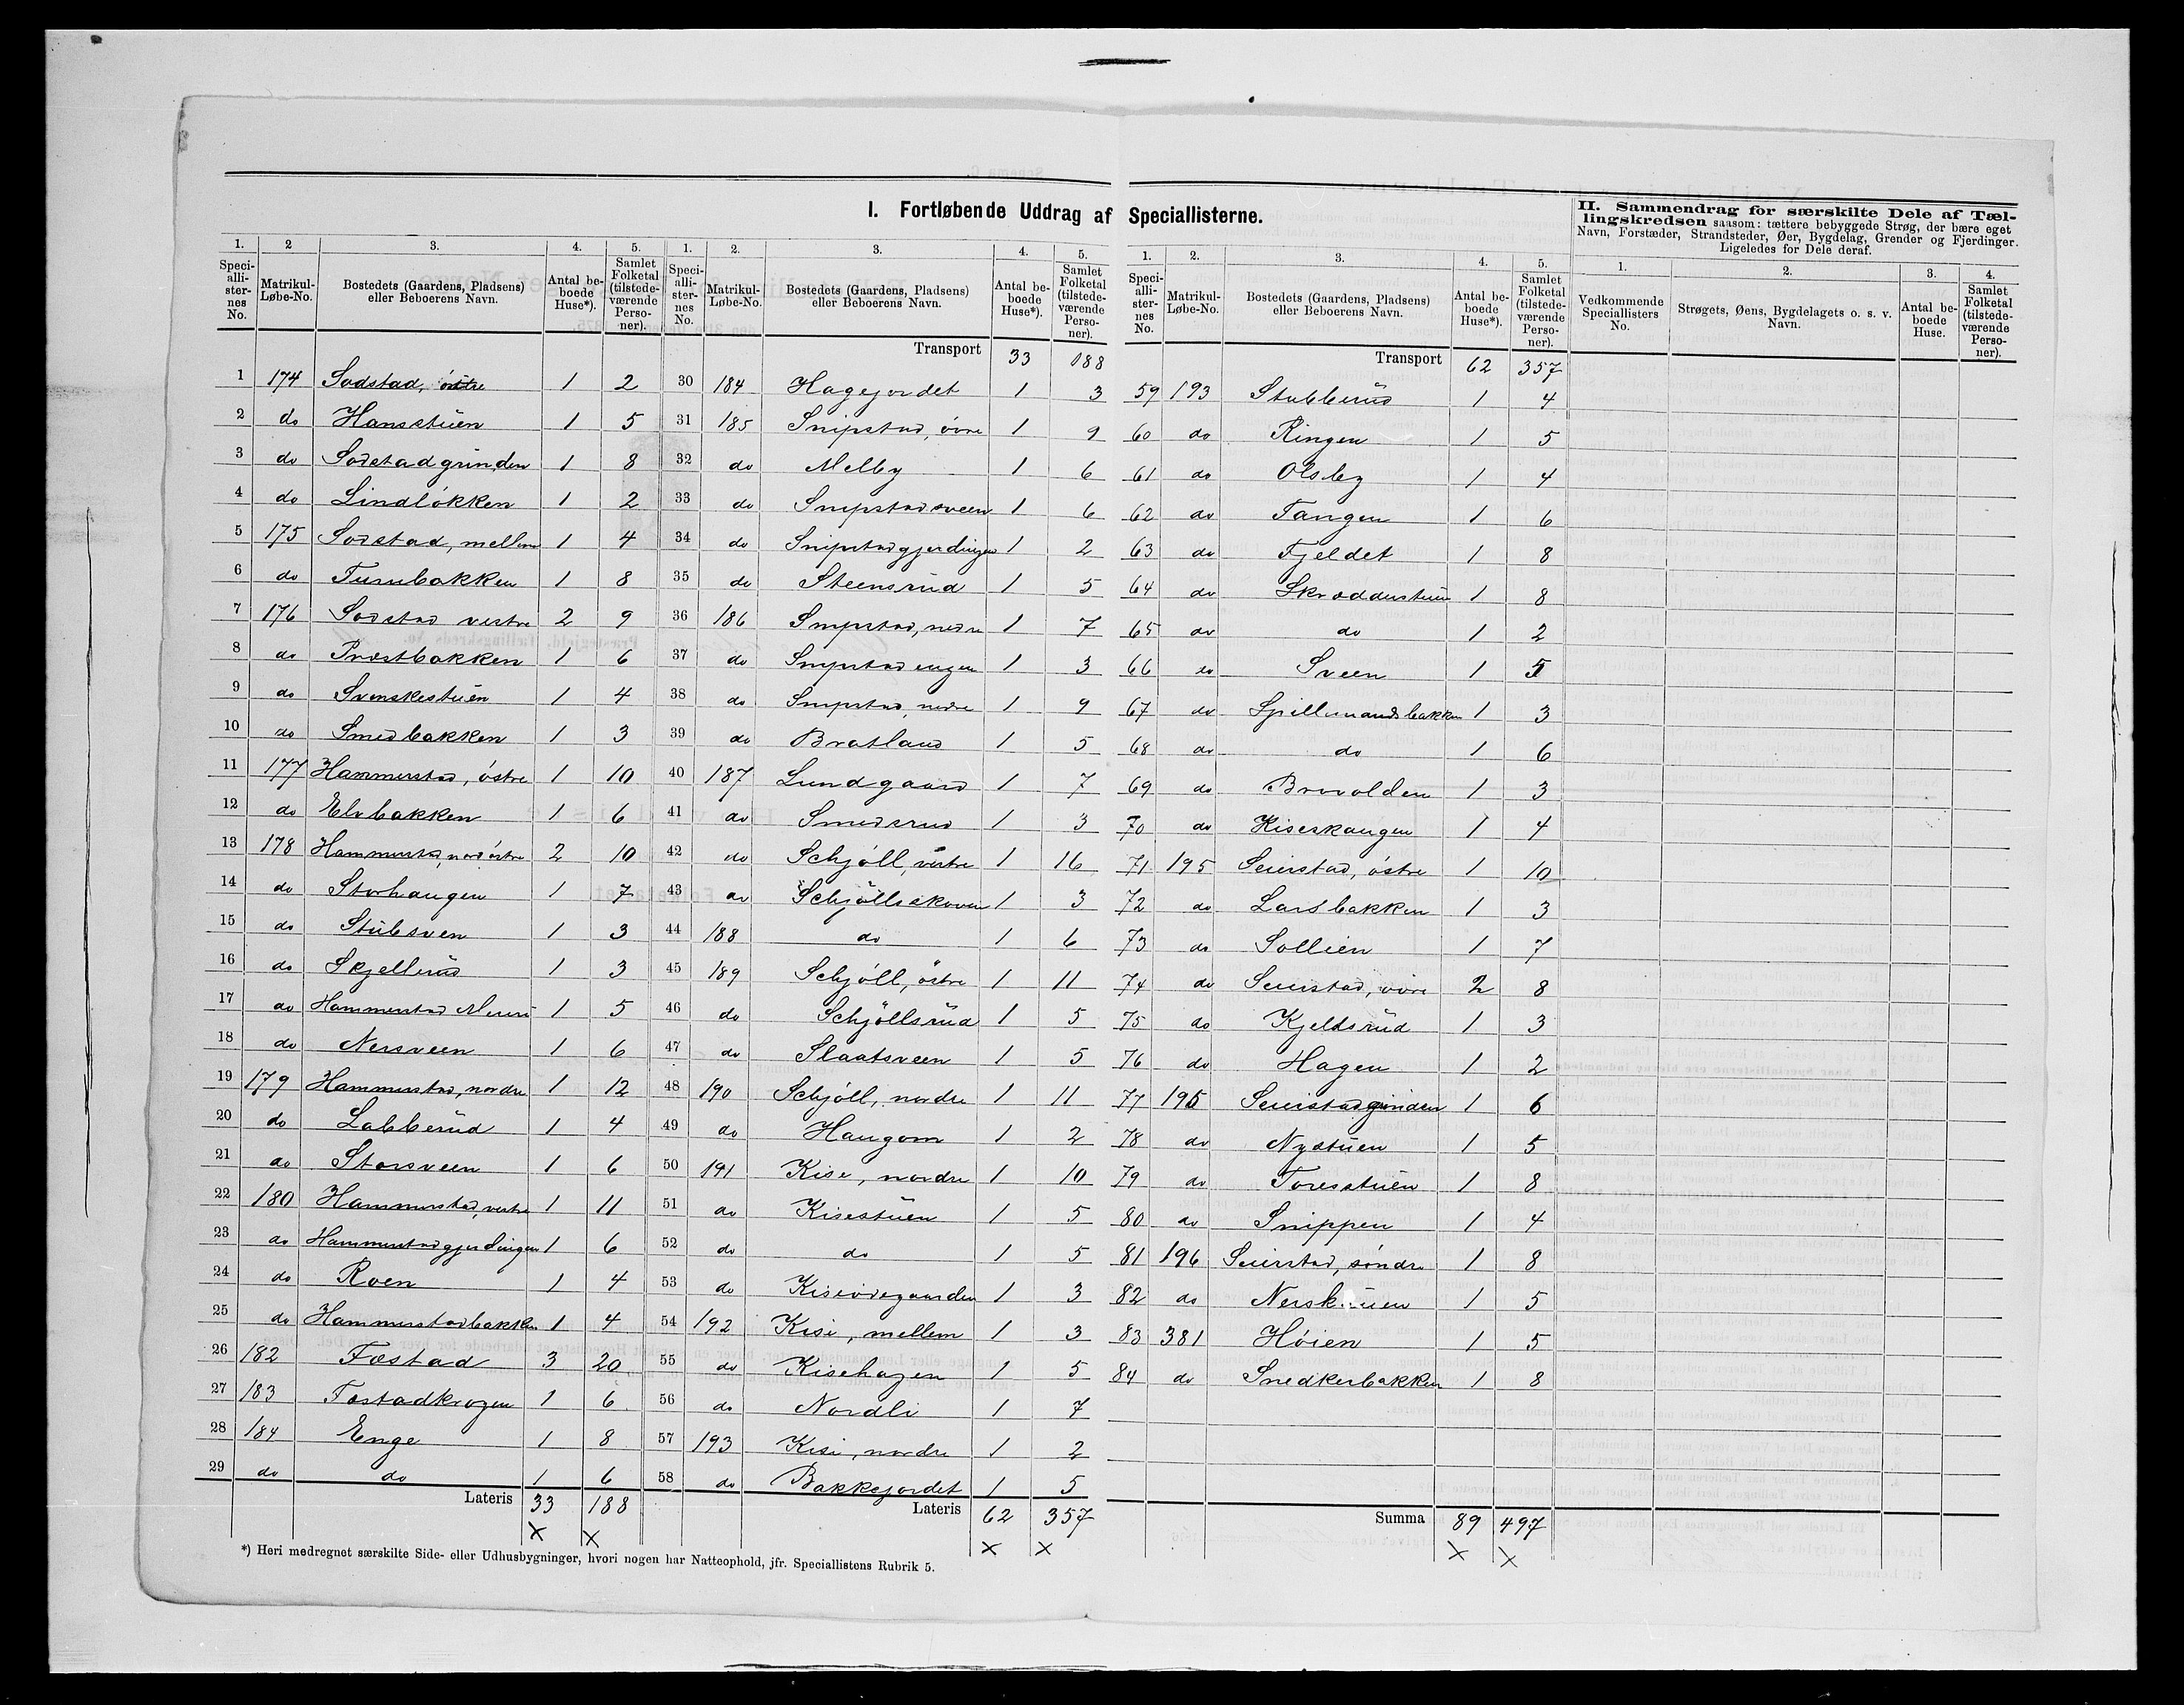 I. Fortløbende Uddrag af Speciallisterne.
II. Sammendrag for særskilte Dele af Tællingskredsen saasom: tættere bebyggede Strøg, der bære eget
Navn, Forstæder, Strandsteder, Øer, Bygdelag, Grender og Fjerdinger.
Ligeledes for Dele deraf.
1. 2 3. 4. 5.
Speciallisternes No. Matrikul-Løbe-No. Bostedets (Gaardens, Pladsens) eller Beboerens Navn. Antal beboede Huse*). Samlet Folketal (tilstedeværende Personer).
1 174 Sodstad, östre 1 2
2 do Hansstüen 1 5
3 do Sodstadgrinden 1 8
4 do Lindlökken 1 2
5 175 Sodstad, mellem 1 4
6 do Tusubakken 1 8
7 176 Sodstad vestre 2 9
8 do Præstbakken 1 6
9 do Svenskestüen 1 4
10 do Smedbakken 1 3
11 177 Hammerstad, östre 1 10
12 do Elvbakken 1 6
13 178 Hammerstd, nordöstre 2 10
14 do Storhaugen 1 7
15 do Stübsven 1 3
16 do Skjellerüd 1 3
17 do Hammerstad 1 5
18 do Nersveen 1 6
19 179 Hammerstad, nordre 1 12
20 do Labberüd 1 4
21 do Storsveen 1 6
22 180 Hammerstad, vestre 1 11
23 do Hammerstadgjerdingen 1 6
24 do Roen 1 4
25 do Hammerstadbakken 1 4
26 182 Fæstad 3 20
27 183 Fæstadkrogen 1 6
28 184 Enge 1 8
29 do do 1 6
Lateris 33 188
X X
1. 2. 3. 4. 5.
Speciallisternes No. Matrikul-Løbe-No. Bostedets (Gaardens, Pladsens) eller Beboerens Navn. Antal beboede Huse*). Samlet Folketal (tilstedeværende Personer).
Transport 33 188
30 184 Hagejordet 1 3
31 185 Snipstad, övre 1 9
32 do Melby 1 6
33 do Snipstadsveen 1 6
34 do Snipstadgjerdingen 1 2
35 do Steensrüd 1 5
36 186 Snipstad, nedre 1 7
37 do Snipstadengen 1 3
38 do Snipstad, nedre 1 9
39 do Bratland 1 5
40 187 Lundgaard 1 7
41 do Smedsrud 1 3
42 do Schjöll, vestre 1 16
43 do Schjöllsskoven 1 3
44 188 do 1 6
45 189 Schjöll, östre 1 11
46 do Schjöllsrüd 1 5
47 do Slaatsveen 1 5
48 190 Schjöll, nordre 1 11
49 do Haugom 1 2
50 191 Kise, nordre 1 10
51 do Kisestüen 1 5
52 do do 1 5
53 do Kiseödegaarden 1 3
54 192 Kise, mellem 1 3
55 do Kisehagen 1 5
56 do Nordli 1 7
57 193 Kise, nordre 1 2
58 do Bakkejordet 1 5
Lateris 62 357
X X
1. 2. 3. 4. 5.
Speciallisternes No. Matrikul-Løbe-No. Bostedets (Gaardens, Pladsens) eller Beboerens Navn. Antal beboede Huse*). Samlet Folketal (tilstedeværende Personer).
Transport 62 357
59 193 Stubberüd 1 4
60 do Ringen 1 5
61 do Olsby 1 4
62 do Tangen 1 6
63 do Fjeldet 1 8
64 do Skrædderstuen 1 8
65 do do 1 2
66 do Sveen 1 5
67 do Spillmandsbakken 1 3
68 do do 1 6
69 do Brovolden 1 3
70 do Kiseskaugen 1 4
71 195 Seierstad, östre 1 10
72 do Larsbakken 1 3
73 do Sollien 1 7
74 do Seierstad, övre 2 8
75 do Kjeldsrüd 1 3
76 do Hagen 1 2
77 195 Seierstadgrinden 1 6
78 do Nystüen 1 5
79 do Toresstüen 1 8
80 do Snippen 1 4
81 196 Seierstad, söndre 1 8
82 do 1 5
83 381 Höien 1 5
84 do Snedkerbakken 1 8
Summa 89 497
X X
1. 2. 3. 4.
Vedkommende Speciallisters No. Strøgets, Øens, Bygdelagets o. s. v. Navn. Antal beboede Huse. Samlet Folketal (tilstedeværende Personer).
*) Heri medregnet særskilte Side- eller Udhusbygninger, hvori nogen har Natteophold, jfr. Speciallistens Rubrik 5.